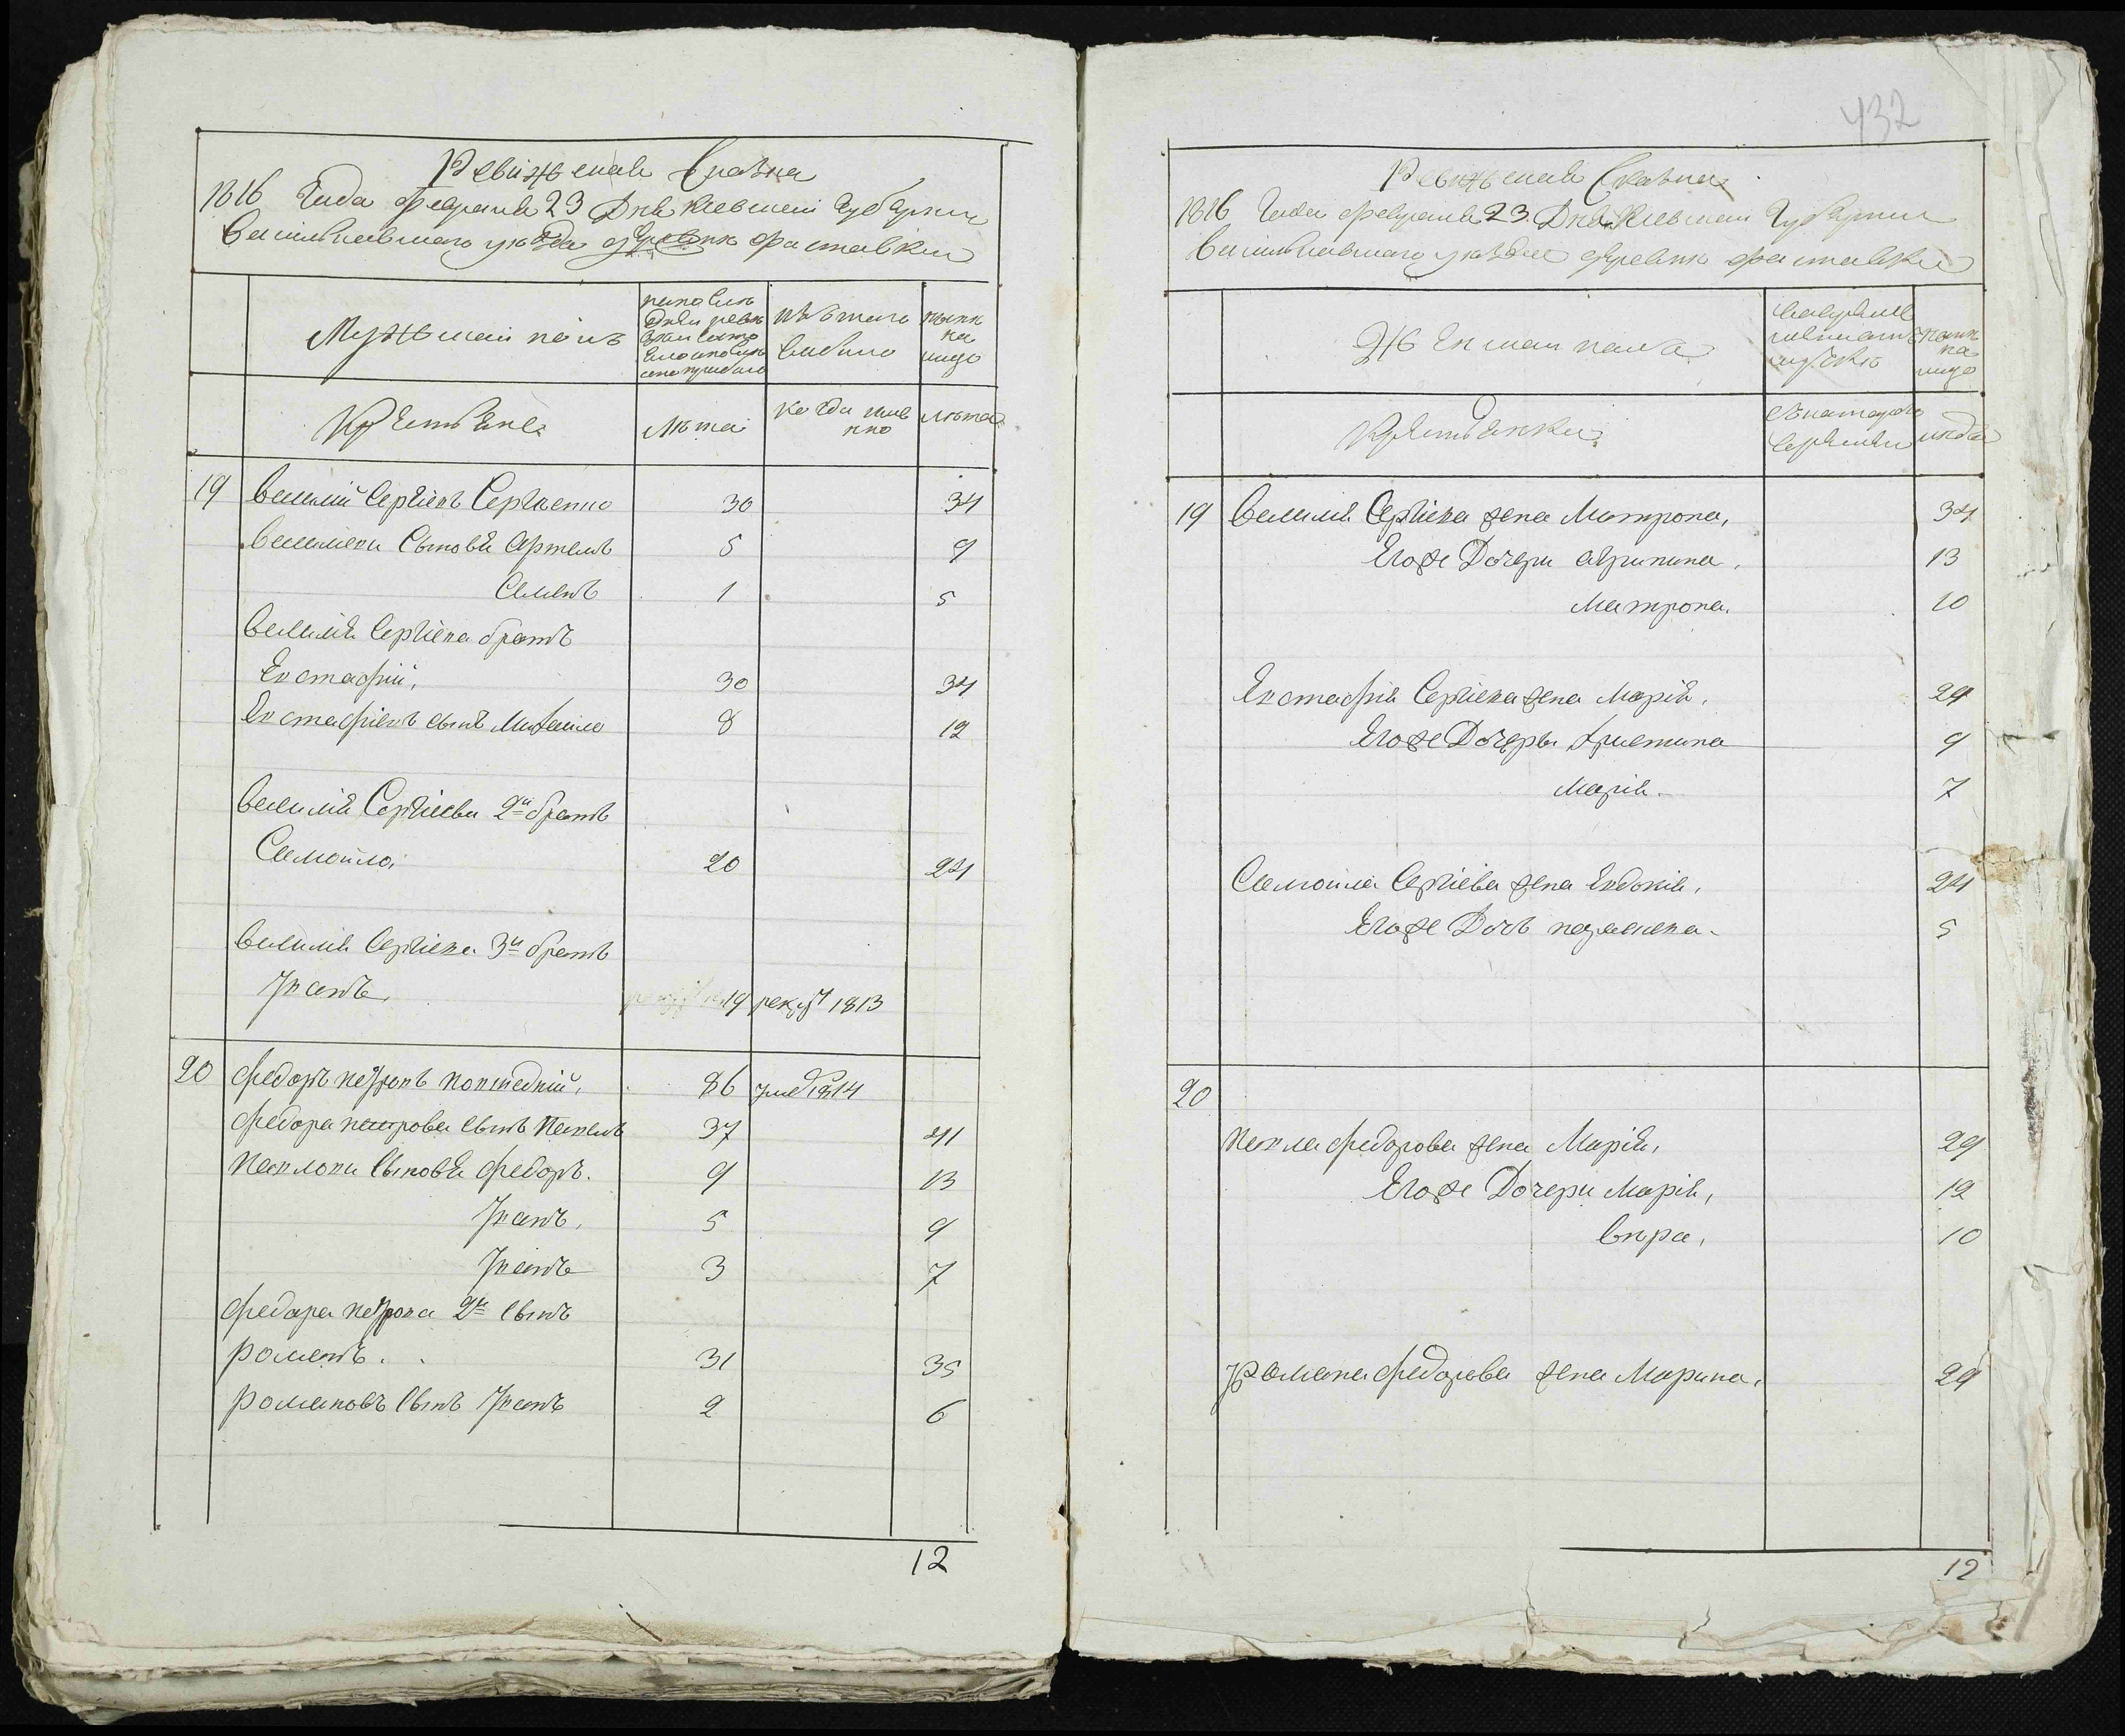 Ревижская Сказка
1816 Года февраля 23 Дня Киевской Губернии
Васильковского уезда деревни Фаставки
Мужской полъ
по последней ревизии состояло и после оной прибыло
изъ того выбыло
ныне на лицо
Крестьяне
Лѣта
когда именно
Лѣта
19 Василий Сергіевъ Сергѣенко 30 34
Василіеви Сыновья Артемъ 5 9
Семенъ 1 5
Василія Сергіева братъ
Евстафій, 30 34
Евстафіевъ сынъ Михайло 8 12
Василія Сергіева 2й братъ
Самойло, 20 24
Василія Сергіева 3й братъ
Иванъ, 19 рекрут 1813
20 Федоръ Петровъ 86 умер 1814
Федора Петрова сынъ Павелъ 37 41
Павлови Сыновья Федоръ. 9 13
Иванъ, 5 9
Иванъ 3 7
Федора Петрова 2й сынъ
Романъ. 31 35
Романовъ сынъ Иванъ 2 6
12
432
Ревижская Сказка
1816 Года февраля 23 Дня Киевской Губернии
Васильковского уезда деревни Фаставки
Женская пола
ныне на лицо
Крестьянки
19 Василія Сергіева жена Матрона, 34
Егоже Дочери Агрипина, 13
Матрона. 10
Евстафія Сергіева жена Марія, 29
Егоже Дочеры Христина 9
Марія. 7
Самойла Сергіева жена Евдокія, 24
Егоже Дочь Параскева. 5
20
Павла Федорова жена Марія, 29
Егоже Дочери Марія, 12
Вира, 10
Романа Федорова жена Марина, 29
12